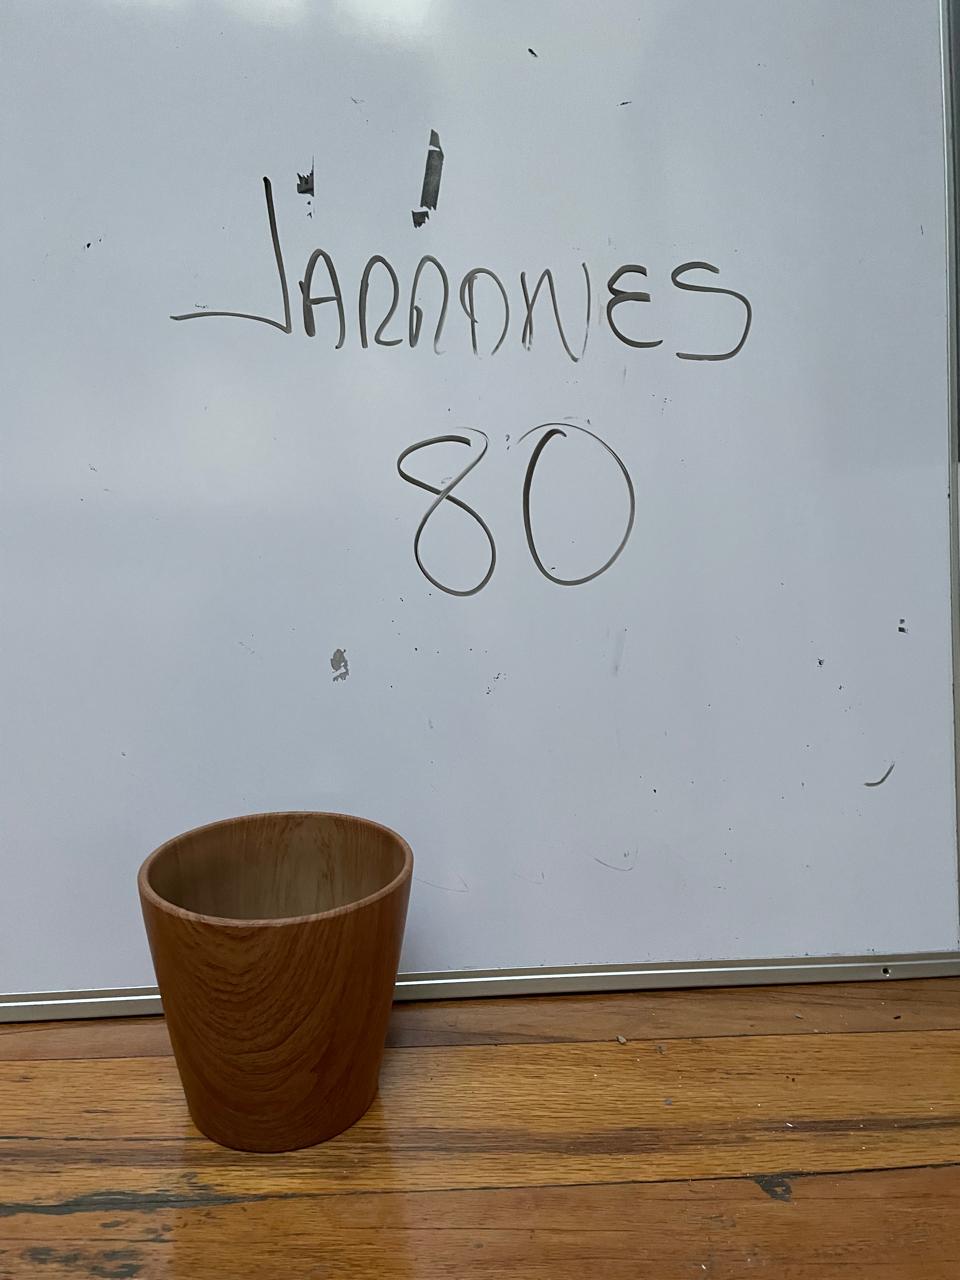 JARRONES
80